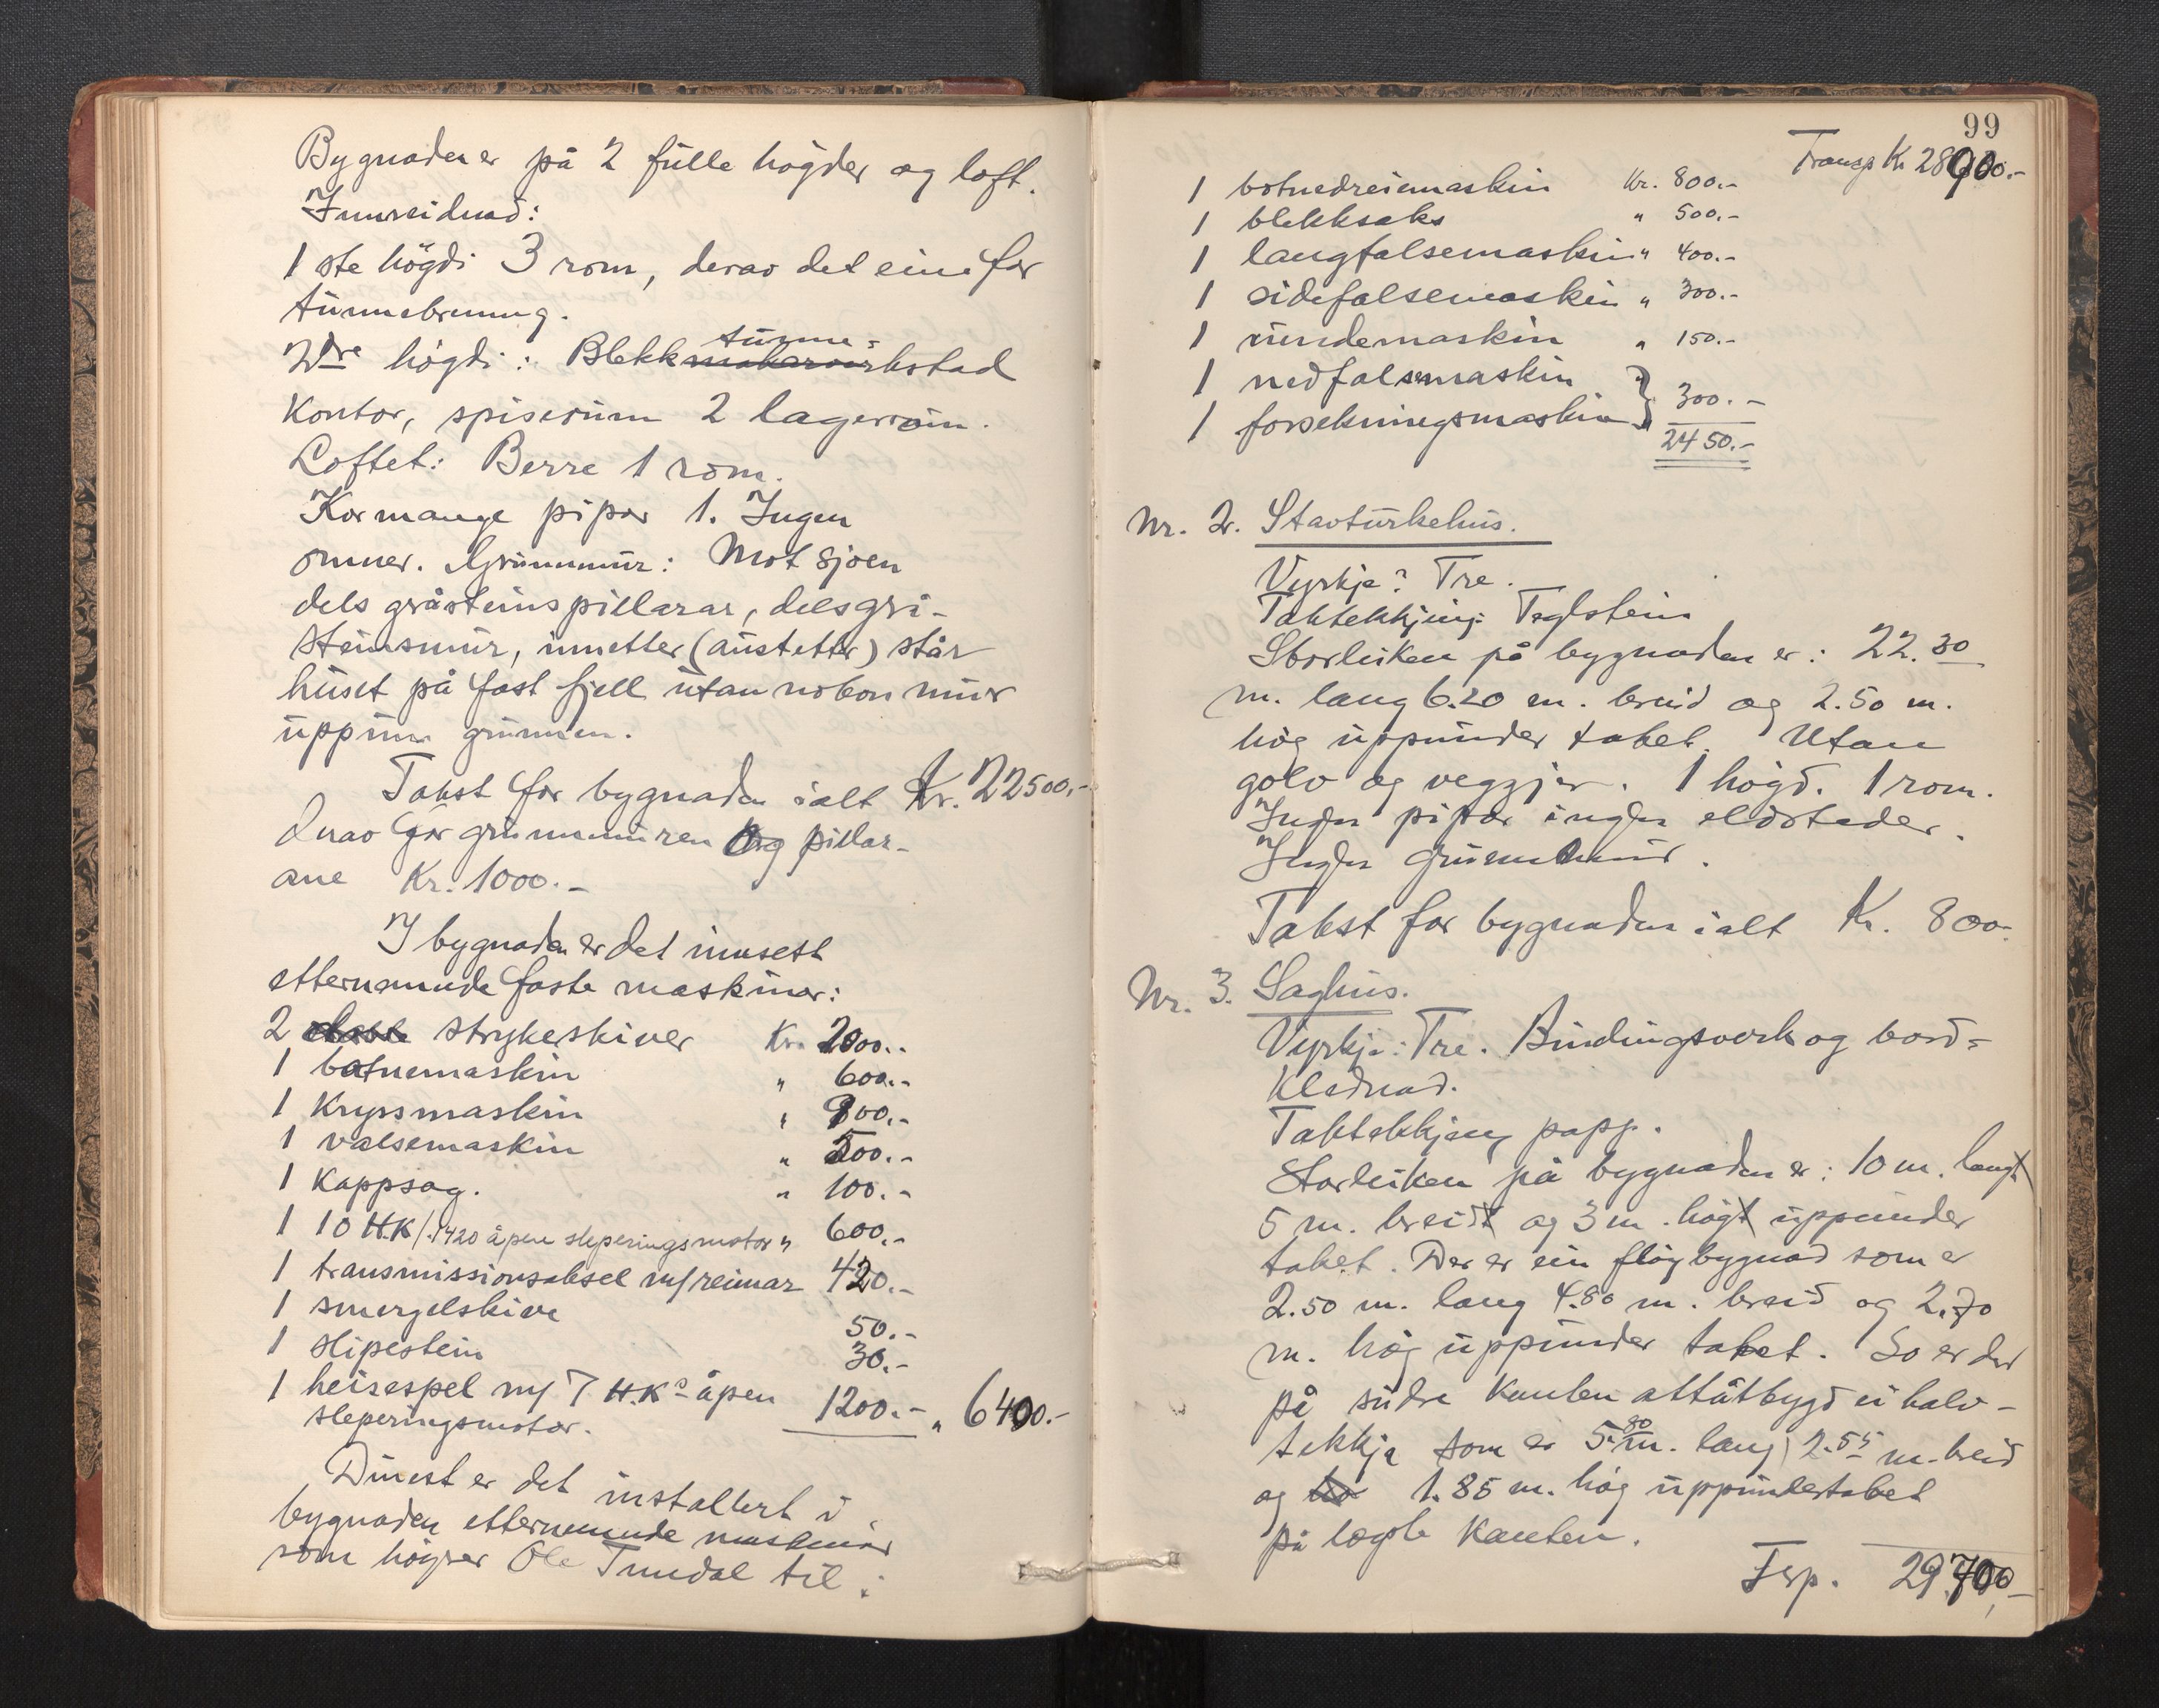 Bygnaden er på 2 fulle högder og loft.
Innreidnad:
1ste högdi 3 rom, derav det eine for
tunnebrenning.
2dre högdi: Blekktunne-
makarverkstad
Kontor, spiserum 2 lagerrom.
Loftet: Berre 1 rom.
Kor mange pipor 1. Ingen
omner. Grunnmur: Mot sjøen
dels gråsteinspillarar, dels grå-
steinsmur, innetter (austetter) står
huset på fast fjell utan nokon mur
uppum grunnen.
Takst for bygnaden ialt Kr. 22500.-
derav for grunnmuren og pillar-
ane Kr. 1000.-
I bygnaden er det innsett
etternemnde faste maskiner:
2 strykeskiver Kr. 2000.-
1 botnemaskin " 600.-
1 Kryssmaskin " 900.-
1 valsemaskin " 500.-
1 Kappsag. " 100.-
1 10 H.K/1420 åpen sleperingsmotor " 600.-
1 transmissionsaksel m/reimar 420.-
1 smergelskive 50.-
1 slipestein 30.-
1 heisespel m/ 7 H.K.s åpen 1200.- " 6400.-
sleperingsmotor.
Dinest er det installert i
bygnaden etternemnde maskinar
som høyrer Ole Tundal til:
99
Transp Kr 28900.-
1 botnedreiemaskin Kr. 800.-
1 blekksaks " 500.-
1 langfalsemaskin " 400.-
1 sidefalsemaskin " 300.-
1 rundemaskin " 150.-
1 nedfalsemaskin
1 forsekningsmaskin } " 300.-
2450.-
Nr. 2. Stavturkehus.
Vyrkje: Tre.
Taktekkjing: Teglstein
Storleiken på bygnaden er: 22.30
m. lang 6.20 m. breid og 2.50 m.
høg uppunder taket. Utan
golv og veggjer. 1 högd. 1 rom.
Ingen pipor ingen eldstader.
Ingen grunnmur.
Takst for bygnaden ialt Kr. 800.-
Nr. 3. Saghus.
Vyrkje: Tre. Bindingsverk og bord-
klednad.
Taktekkjing papp.
Storleiken på bygnaden er: 10 m. langt
5 m. breidt og 3 m. högt uppunder
taket. Der er ein fløybygnad som er
2.50 m. lang 4.80 m. breid og 2.70
m. høg uppunder taket. So er der
på sudre kanten attåtbygd ei halv-
tekkje som er 5.80 m. lang, 2.55 m. breid
og 1.85 m. høg uppundertaket
på lægste kanten.
Tsp. 29.700,-